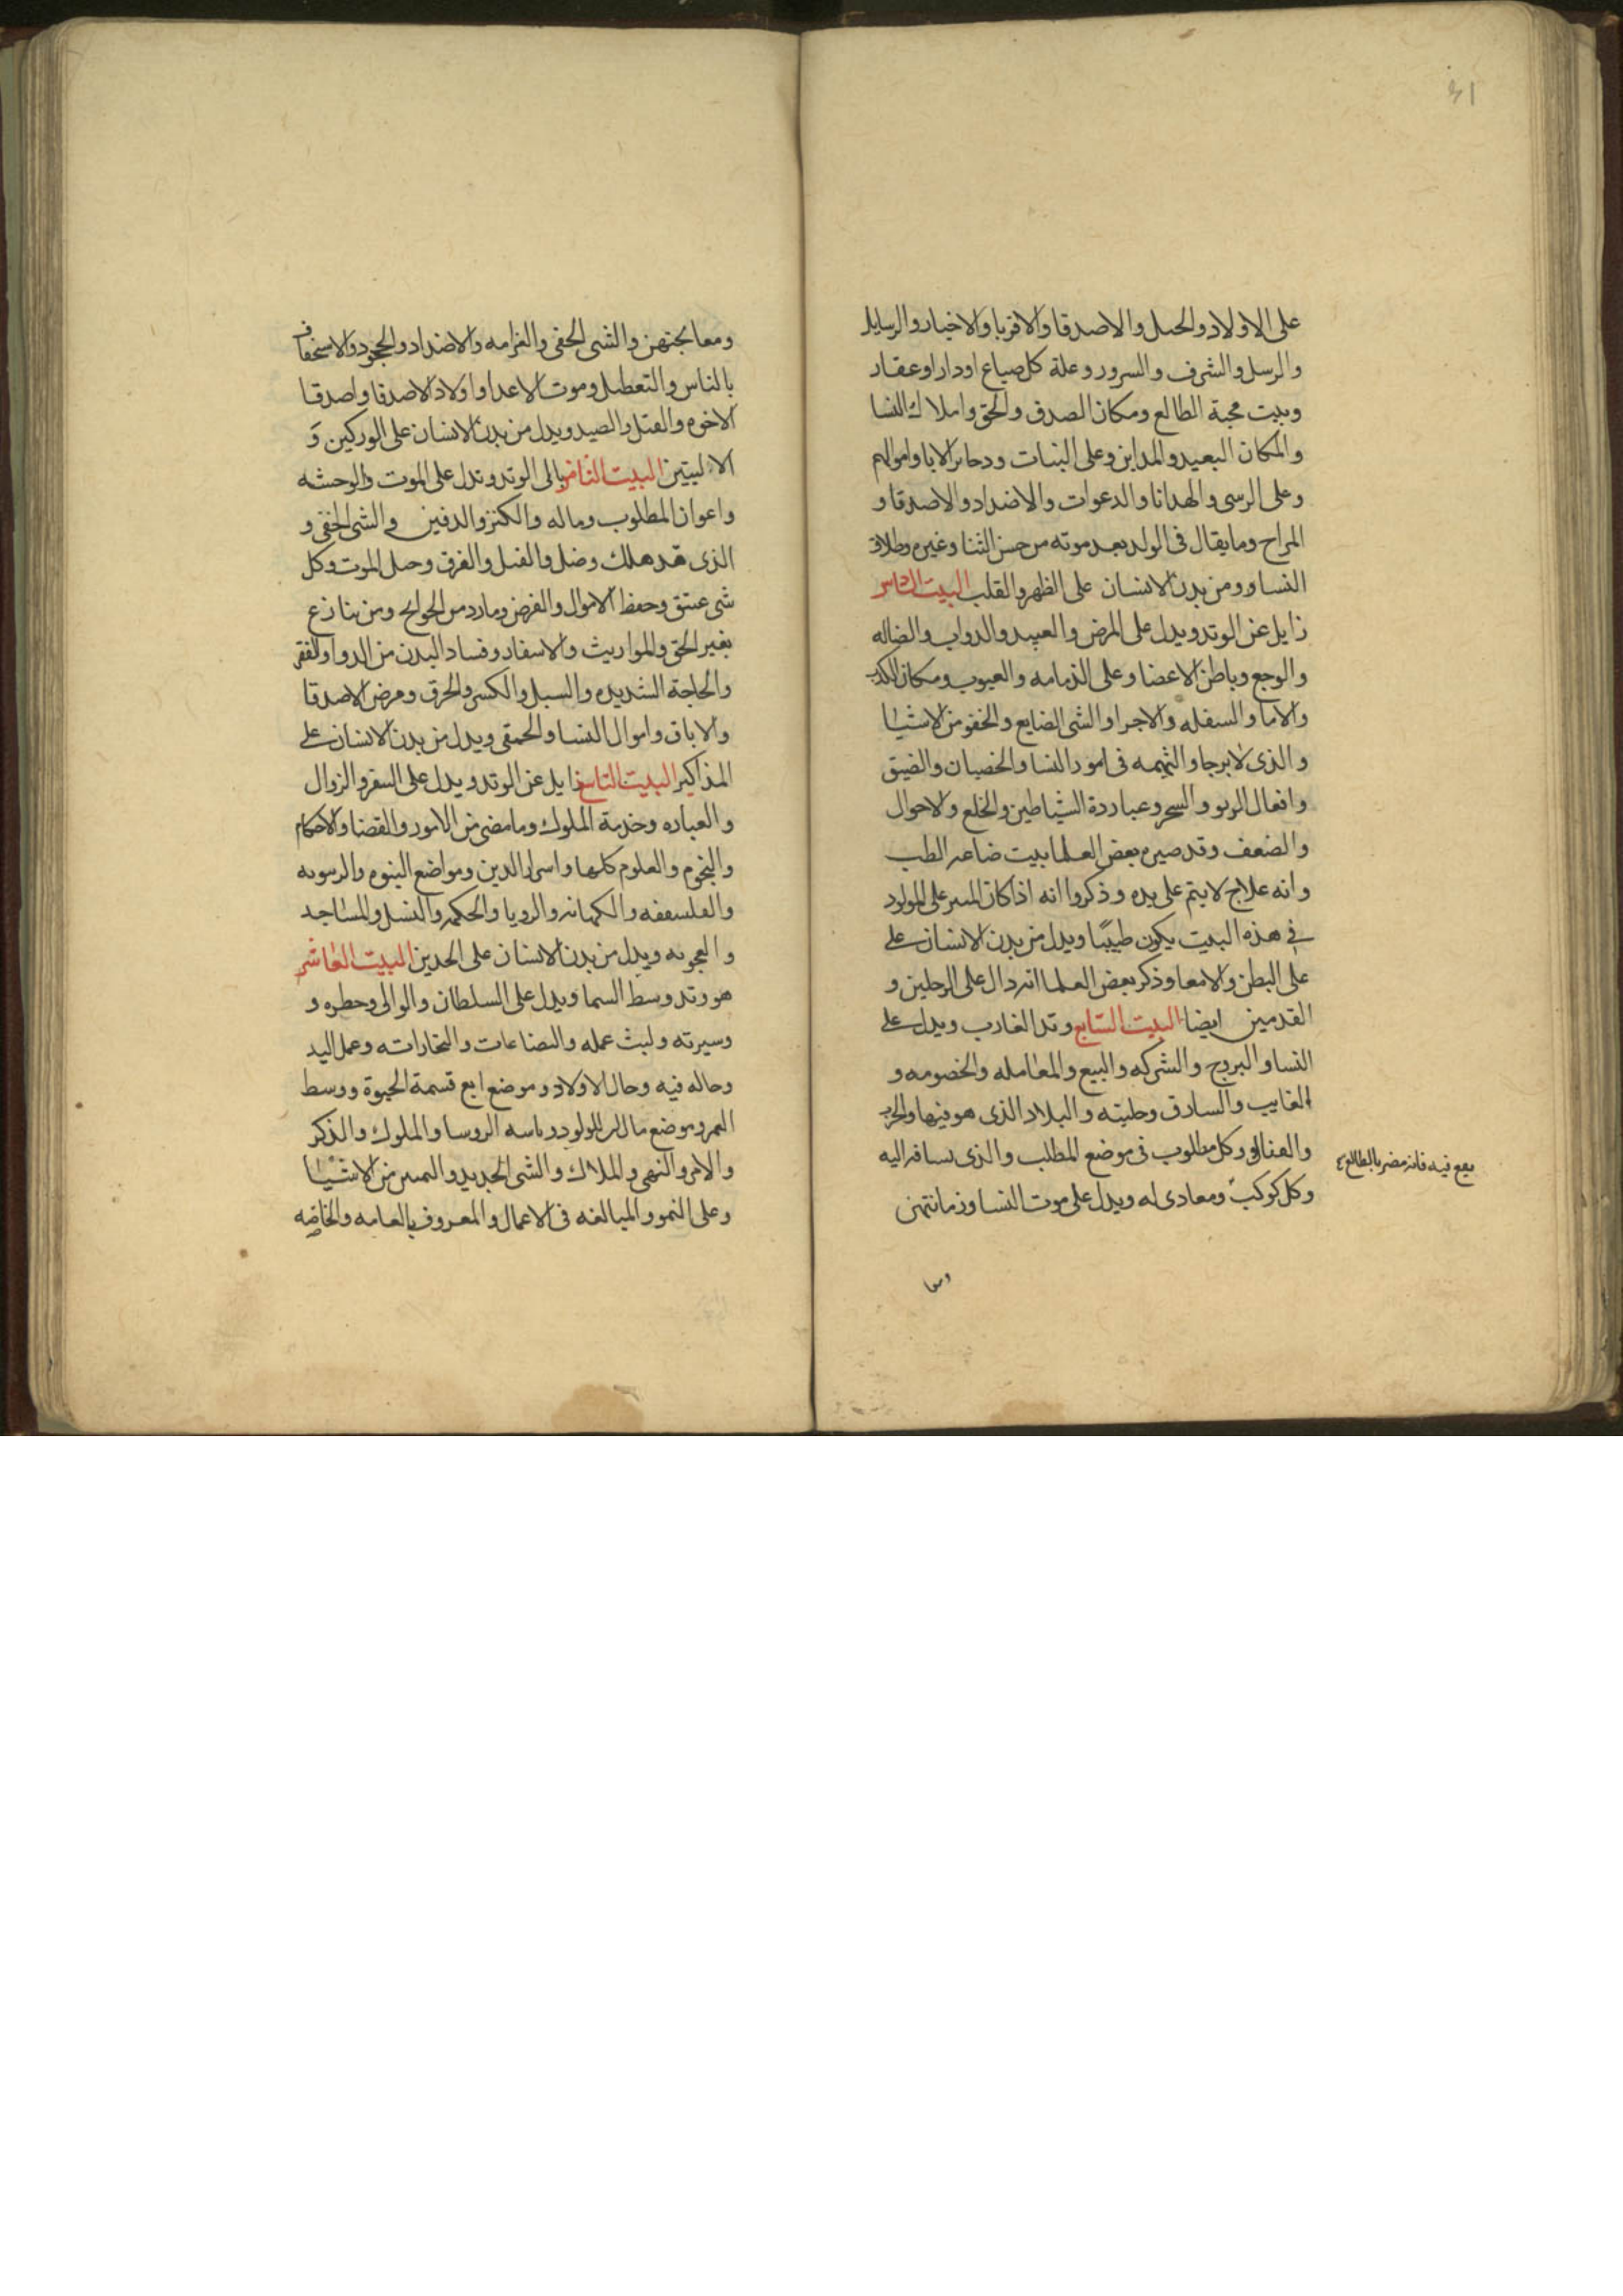 على الاولاد والحبل والاصدقا والاقربا والاخبار والرسايل
والرسل والشرف والسرور وغلة كل صياع او دار او عقار
وبيت محبة الطالع ومكان الصدق والحق واملاك النسا
والمكان البعيد والمداين وعلى البنات ودخاير الابا واموالهم
وعلى الرسى والهدايا والدعوات والاضداد والاصدقا و
المراح وما يقال فى الولد بعد موته من حسن الثنا وغيره وطلاق
النسا ومن بدن الانسان على الظهر والقلب البيت السادس
زايل عن الوتد ويدل على المرض والعبيد والدواب والضاله
والوجع وباطن الاعضا وعلى الذمامه والعيوب ومكان الكذب
والاما والسفله والاجرا والشى الضايع والخفو من الاشيا
والذى لا يرجا والتهمه فى امور النسا والخصيان والضيق
وافعال الربو والسحر وعباردة الشياطين والخلع والاحوال
والضعف وقد صيره بعض العلما بيت ضاعه الطب
وانه علاج لا يتم على يده وذكروا انه اذا كان المسر على المولود
فى هذه البيت يكون طبيبًا ويدل من بدن الانسان على
على البطن والامعا وذكر بعض العلما انه دال على الرجلين و
القدمين ايضا البيت السّابع وتد الغارب ويدل على
النسا والبروج والشركه والبيع والمعامله والخصومه و
الغايب والسارق وحليته والبلاد الذى هو فيها والحرب
والقتال وكل مطلوب فى موضع المطلب والذى يسافر اليه
يقع فيه فانه مضر بالطالع
وكل كوكب ومعادى له ويدل على موت النسا وزمانتهن
ومعا
ومعالجتهن والشى الخفى والغرامه والاضداد والجحود والاسخفاف
بالناس والتعطيل وموت الاعدا واولاد الاصدقا واصدقا
الاخوه والقتل والصيد ويدل من بدن الانسان على الوركين وَ
الاليتين البيت الثامن يالى الوتد وتدل على الموت والوحشه
واعوان المطلوب وماله والكنز والدفين والشى الخفى و
الذى قد هلك وضل والقتل والغرق وحل الموت وكل
شى عتق وحفظ الاموال والفرض وما رد من الحوايج ومن ينازع
بغير الحق والمواريث والاسفار وفساد البدن من الدوا والفقر
والحاجة الشديده والسبل والكسر والحرق ومرض الاصدقا
والاباق واموال النسا والحمقى ويدل من بدن الانسان على
المذاكير البيت التاسع زايل عن الوتد ويدل على السفر والزوال
والعباره وخدمة الملوك وما مضى من الامور والقضا والاحكام
والنجوم والعلوم كلها واسرار الدين ومواضع النبوه والربوبه
والفلسفه والكهانه والرويا والحكمه والنسل والمساجد
والعجوبه ويدل من بدن الانسان على الخدين البيت العاشر
هو وتد وسط السما ويدل على السلطان والوالى وخطره و
وسيرته ولبث عمله والصناعات والتجارات وعمل اليد
وحاله فيه وحال الاولاد وموضع ابع قسمة الحيوة ووسط
العمر وموضع مال المولود ورياسه الروسا والملوك والذكر
والامر والنهى والملاك والشى الجديد والثمين من الاشيا
وعلى النمو والمبالغه فى الاعمال والمعروف بالعامه والخاصّه